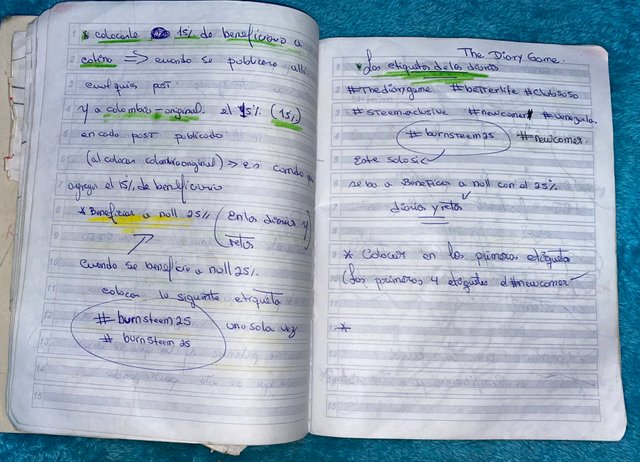 * colocarle 15% de beneficiario a
cotina => cuando se publicara alli
cualquier post.
Y a colombia-original, el 15% (15%)
en cada post publicado
(al colocar colombiaoriginal) => es cuando
agrega el 15% de beneficiario
* Beneficiar a null 25% (En los diarios y
retos
Cuando se beneficie a null 25%.
colocar la siguiente etiqueta
# burnsteem25 una sola vez
# burnsteem25
The Diary Game.
* Las etiquetas de los diarios
#Thediarygame #betterlife #club5050
#steemexclusive #newcomer #venezuela.
# burnsteem25 #newcomer.
Este solo si
se va a Beneficiar a null con al 25%
diarios y retos
* Colocar en las primeras etiqueta
(Las primeras 4 etiquetas el #newcomer
*